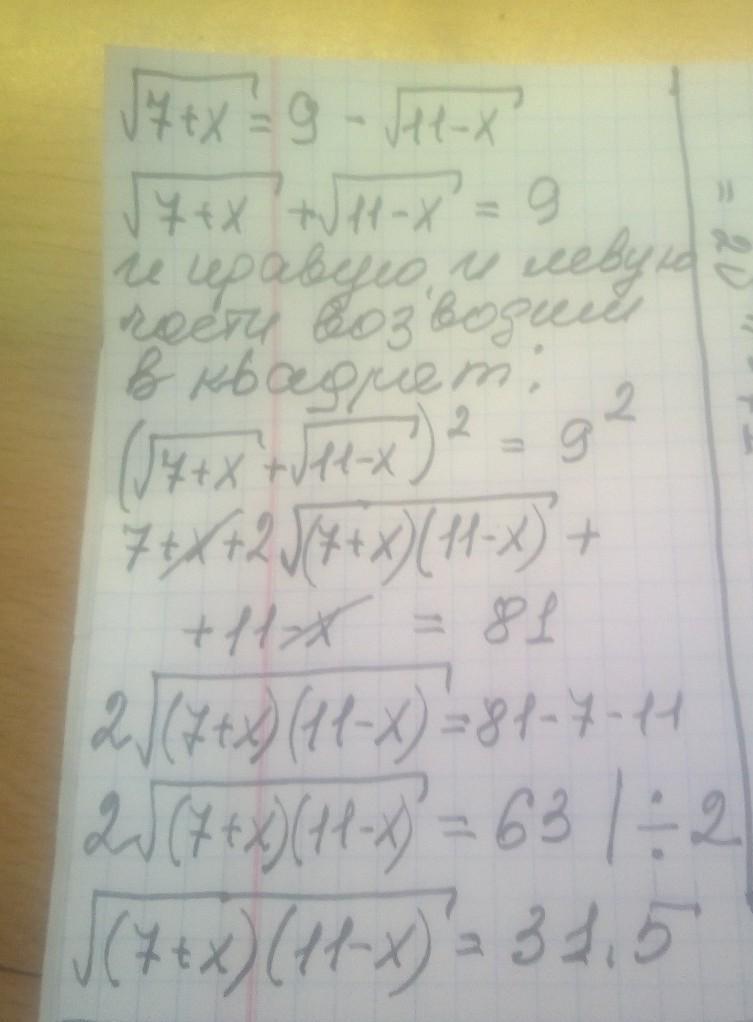 √7+x = 9 - √11-x
√7+x + √11-x = 9
и правую, и левую
части возводим
в квадрет:
(√7+x + √11-x)² = 9²
7+x+2√(7+x)(11-x) +
+11-x = 81
2√(7+x)(11-x) = 81-7-11
2√(7+x)(11-x) = 63 | ÷ 2
√(7+x)(11-x) = 31,5